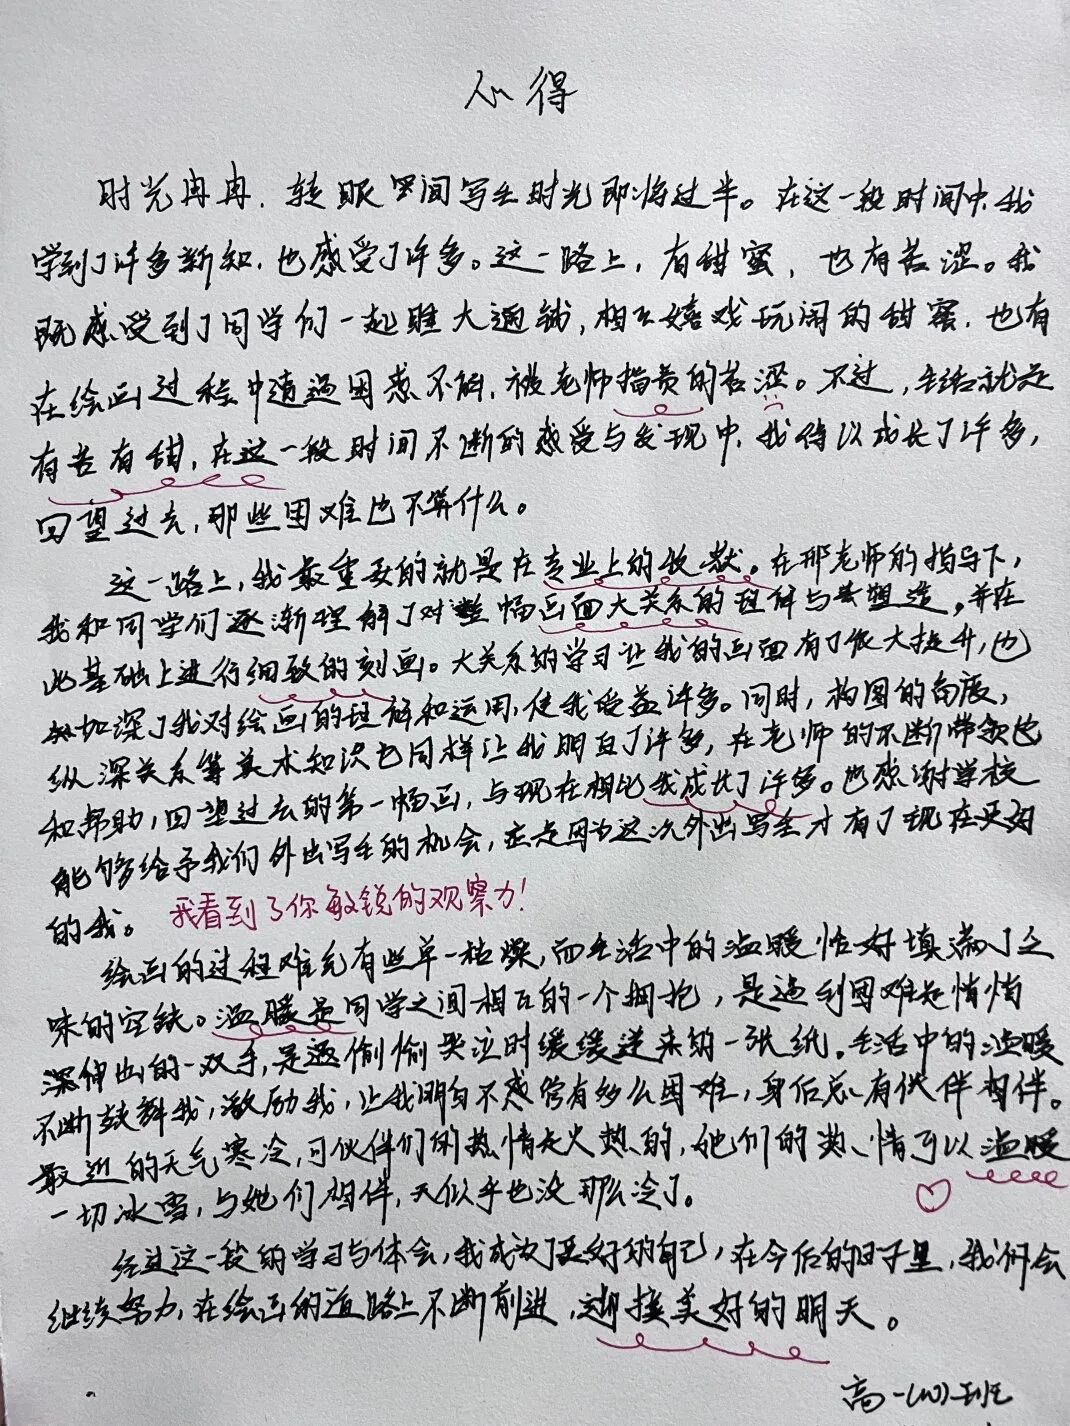 心得
时光冉冉,转眼间写生时光即将过半。在这一段时间中,我
学到了许多新知,也感受了许多。这一路上,有甜蜜,也有苦涩。我
既感受到了同学们一起睡大通铺,相互嬉戏玩闹的甜蜜,也有
在绘画过程中遭遇困惑不解,被老师指责的苦涩。不过,生活就是
有苦有甜,在这一段时间不断的感受与发现中,我得以成长了许多,
回望过去,那些困难也不算什么。
这一路上,我最重要的就是在专业上的收获。在邢老师的指导下,
我和同学们逐渐理解了对整幅画面大关系的理解与其塑造,并在
此基础上进行细致的刻画。大关系的学习让我的画面有了很大提升,也
加深了我对绘画的理解和运用,使我受益许多。同时,构图的角度,
纵深关系等美术知识也同样让我明白了许多,在老师的不断带领
和帮助,回望过去的第一幅画,与现在相比我成长了许多。也感谢学校
能够给予我们外出写生的机会,正是因为这次外出写生才有了现在更好
的我。 我看到了你敏锐的观察力!
绘画的过程难免有些单一枯燥,而生活中的温暖恰好填满了乏
味的空缺。温暖是同学之间相互的一个拥抱,是遇到困难是悄悄
伸出的一双手,是返偷偷哭泣时缓缓递来的一张纸。生活中的温暖
不断鼓舞我,激励我,让我明白不感管有多么困难,身后总有伙伴相伴。
最近的天气寒冷,可伙伴们的热情是火热的,她们的热情可以温暖
一切冰雪,与她们相伴,天似乎也没那么冷了。
经过这一段的学习与体会,我成为了更好的自己,在今后的日子里,我们会
继续努力,在绘画的道路上不断前进,迎接美好的明天。
高一(10)班